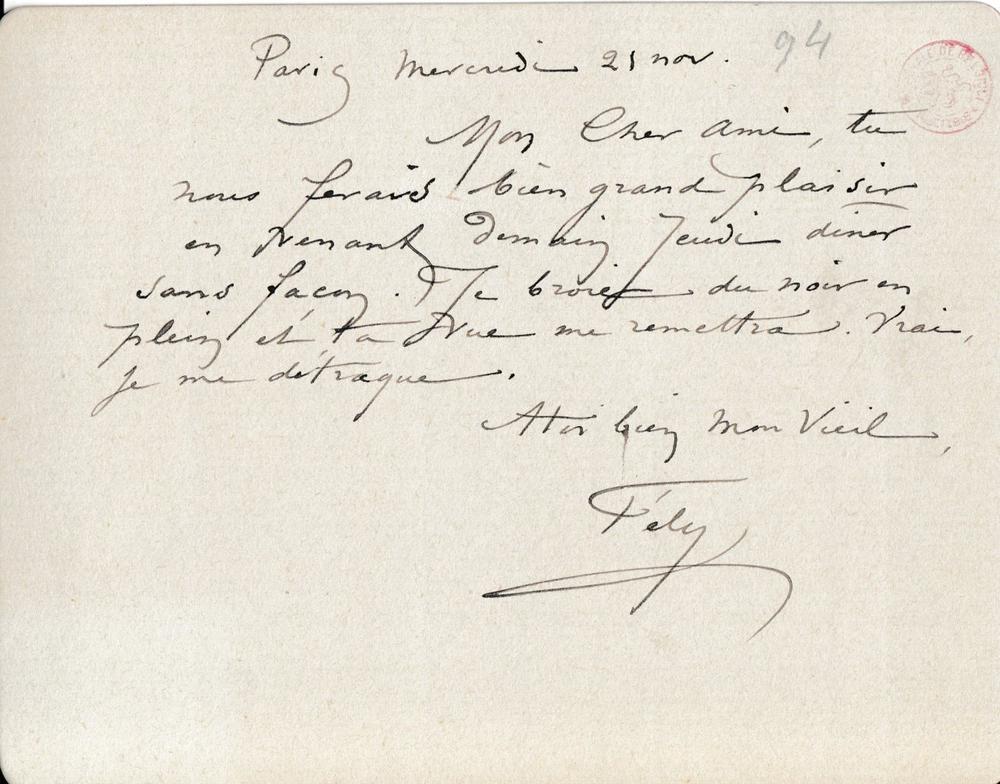 Paris Mercredi 21 nov. 94
Mon Cher Ami, tu
nous ferais bien grand plaisir
en venant demain Jeudi diner
sans façon. Je broie du noir en
plein et ta vue me remettra. Vrai,
je me détraque.
A toi bien mon Vieil,
Fély